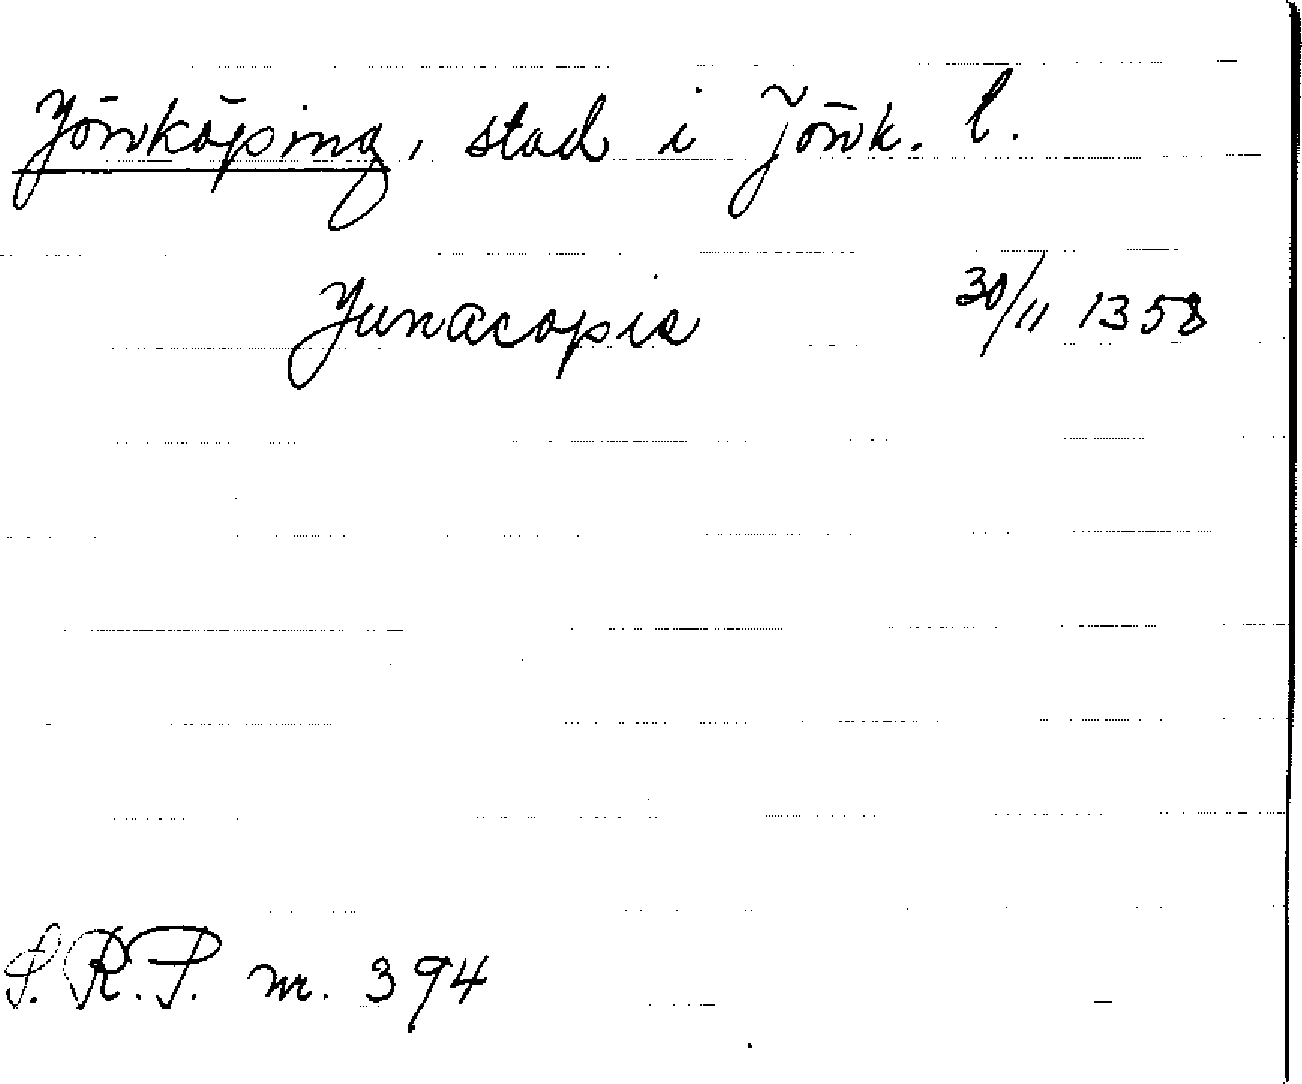 Jönköping, stad i Jönk. l.
Junacopis 30/11 1358
S.R.P. nr. 394